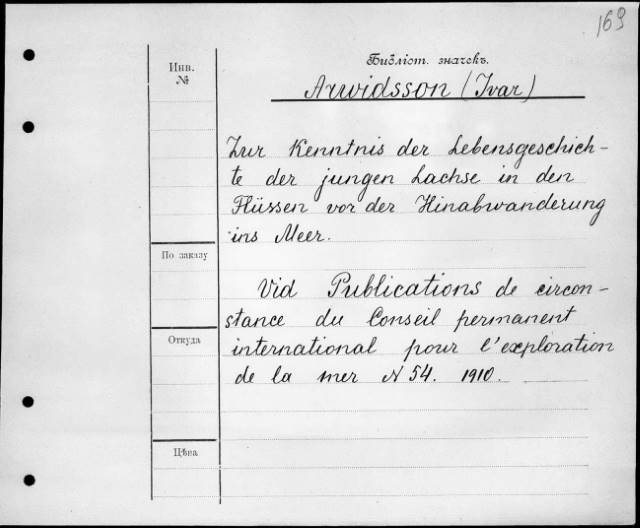 169
Библіот. значекъ.
Инв.
№
Arwidsson (Ivar)
Zur Kenntnis der Lebensgeschich-
te der jungen Lachse in den
Flüssen vor der Hinabwanderung
ins Meer.
По заказу
Vid Publications de circon-
stance du Conseil permanent
Откуда
international pour l'exploration
de la mer N 54. 1910.
Цѣна